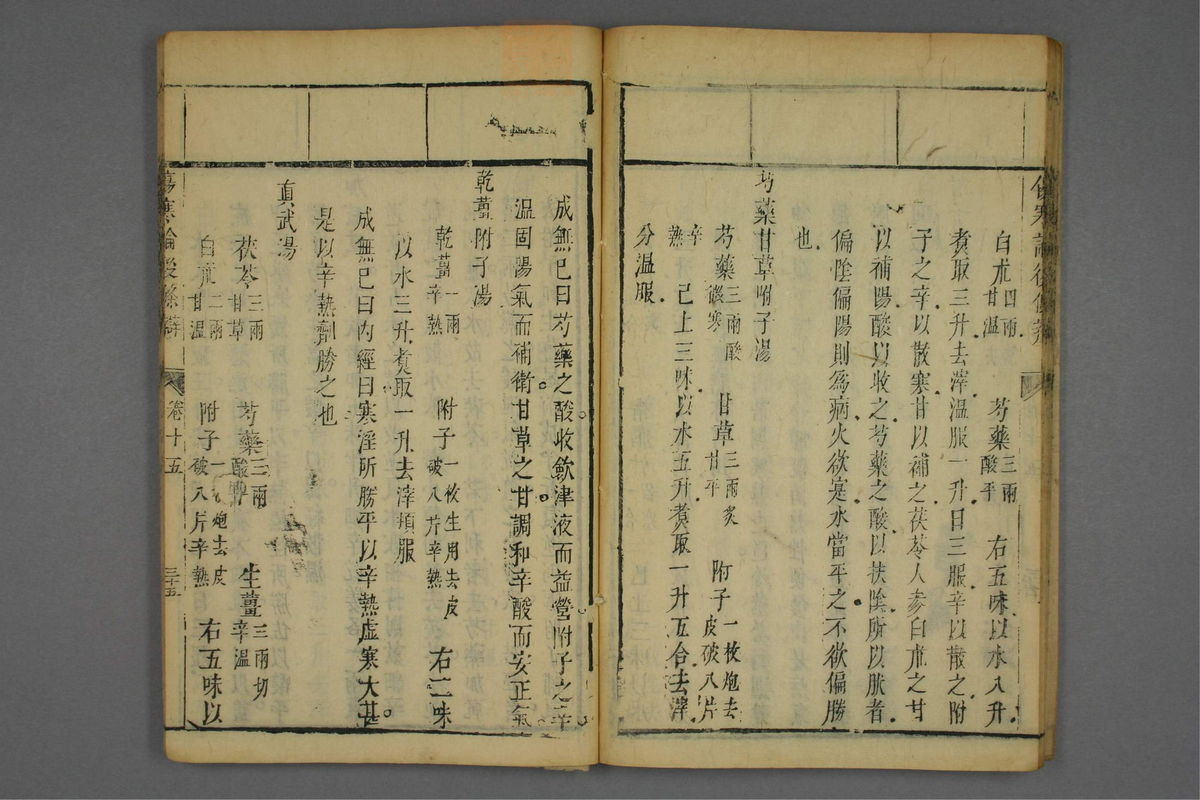 白朮四兩甘溫 芍藥三兩酸平 右五味以水八升
煑取三升去滓溫服一升日三服辛以散之附
子之辛以散寒甘以補之茯苓人參白朮之甘
以補陽酸以收之芍藥之酸以扶陰所以肰者
偏陰偏陽則爲病火欲寔水當平之不欲偏勝
也
芍藥甘草附子湯
芍藥三兩酸微寒 甘草三兩炙甘平 附子一枚炮去皮破八片辛熱
已上三味以水五升煑取一升五合去滓
分溫服
成無已曰芍藥之酸收歛津液而益營附子之辛
溫固陽氣而補衛甘草之甘調和辛酸而安正氣
乾薑附子湯
乾薑一兩辛熱 附子一枚生用去皮破八片辛熱 右二味
以水三升煑取一升去滓頓服
成無已曰內經曰寒淫所勝平以辛熱虛寒大甚
是以辛熱劑勝之也
真武湯
茯苓三兩甘草 芍藥三兩酸 生薑三兩切辛溫
白朮二兩甘溫 附子一炮去皮破八片辛熱 右五味以
傷寒論後條辯 卷十五 三十五